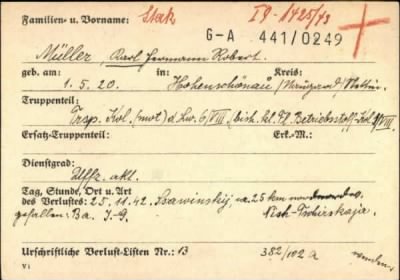 Familien- u. Vorname: Stak IV-1425/43
G-A 441/0249
Müller Karl Hermann Robert.
geb. am: in: Kreis:
1.5.20. Hohenschönau / Naugard / Stettin.
Truppenteil:
Trsp. Kol. (mot) d. Lw. 6/VIII (bish. kl. Fl. Betriebsstoff-Kol. /VIII.
Ersatz-Truppenteil: Erk.-M.:
Dienstgrad:
Uffz. akt.
Tag, Stunde, Ort u. Art
des Verlustes: 25.11.42 Ssawinskij, ca. 25 km
gefallen: Ba. J-9. Nish-Tschirskaja.
Urschriftliche Verlust-Listen Nr.: 13 382/102a
wenden.
V1